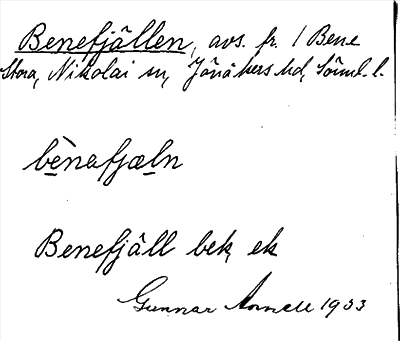 Benefjällen, avs. fr. / Bene
Stora, Nikolai sn, Jönåkers hd, Söml. l.
bènafjæln
Benefjäll bek, ek
Gunnar Annell 1933